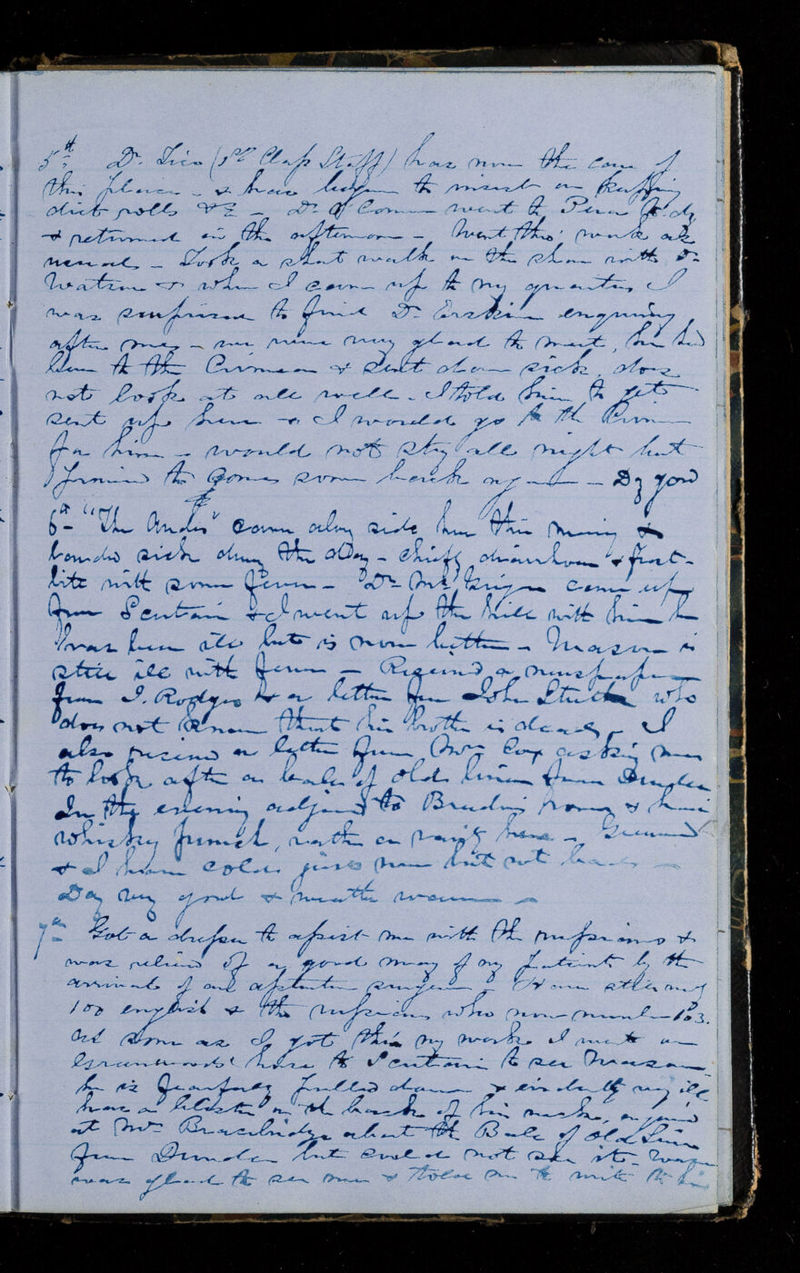 5th Dr. (1st Class Staff) has now the care of
this place - & has begun to insist on keeping
diet rolls &c - Dr. went to Pera to day
& returned in the afternoon - Went thro' work as
usual - Took a short walk on the shore with Dr.
Watson & when I came up to my quarters I
was surprised to find Dr. Erskine enquiring
after me - we were very glad to meet, he had
been to the Crimea & sent down sick, does
not look at all well - I told him to get
sent up here & I would go to the Crimea
for him - would not stay all night but
promised to come soon back again - Day good
6th "The Andes" came along side here this morning &
landed sick during the day - chiefly diarrhoea & frost-
bite with some fever - Dr. came up
from Scutari & I went up the hill with him he
has been ill but is now better - Mason is
still ill with fever - Received a newspaper
from J. Rodgers & a letter from John who
does not know that his brother is dead - I
also received a letter from Mrs. Cox asking me
to look after a bale of old linen from Dundee
In the evening adjourned to room & had
whisky punch, rather a rarity here -
& I have colds just now but not bad -
Day very good & weather warm -
7th Got a dresser to assist me with the Russians &
was relieved of a good many of my patients by the
arrival of an assistant surgeon - Have still
100 english & the russians who now number 103.
as soon as I got thro' my work I went on
Greenwood's horse to Scutari to see Mason
he is fearfully pulled down & evidently very ill
has a blister on the back of his neck, enquired
at Mrs. Bracebridge about the Bale of Old Linen
from Dundee but could not see it -
was glad to see me & told me to write to his